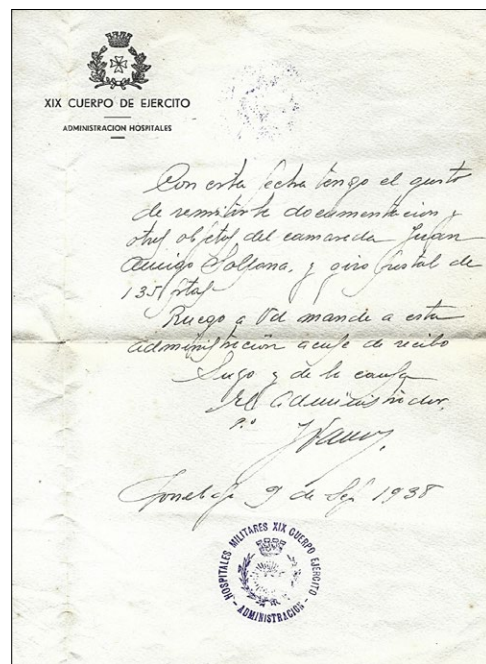 XIX CUERPO DE EJERCITO
ADMINISTRACION HOSPITALES
Con esta fecha tengo el gusto
de remitirle documentacion y
otros objetos del camarada Juan
Amigo Solsona, y giro postal de
135 ptas
Ruego a Vd mande a esta
administración acuse de recibo
Suyo y de la causa
El Administrador,
P.O.
9 de Sep 1938
HOSPITALES MILITARES XIX CUERPO EJERCITO
- ADMINISTRACION -